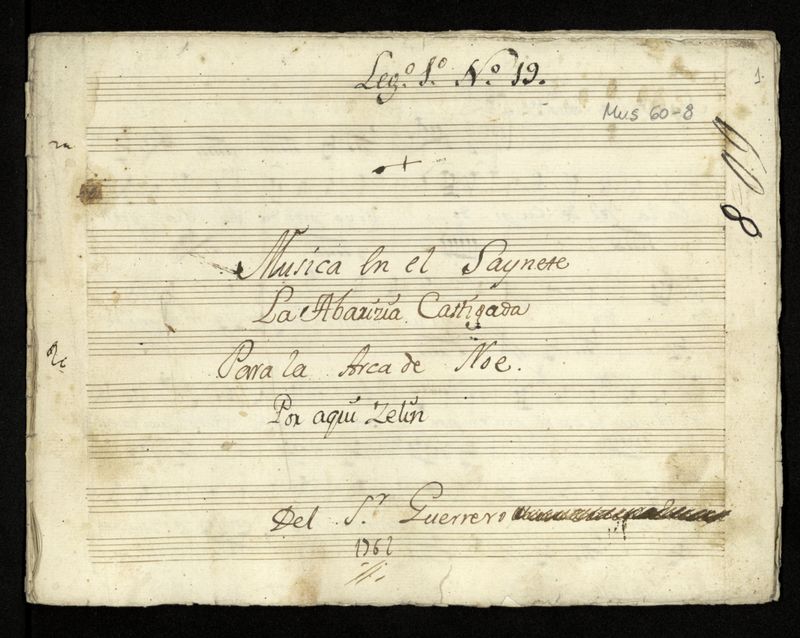 Leg.º 1.º N.º 19.
1.
Mus 60-8
8
+
Musica en el Saynete
La Abarizia Castigada
Para la Arca de Noe.
Por aqui Zelin
Del S.r Guerrero
1762